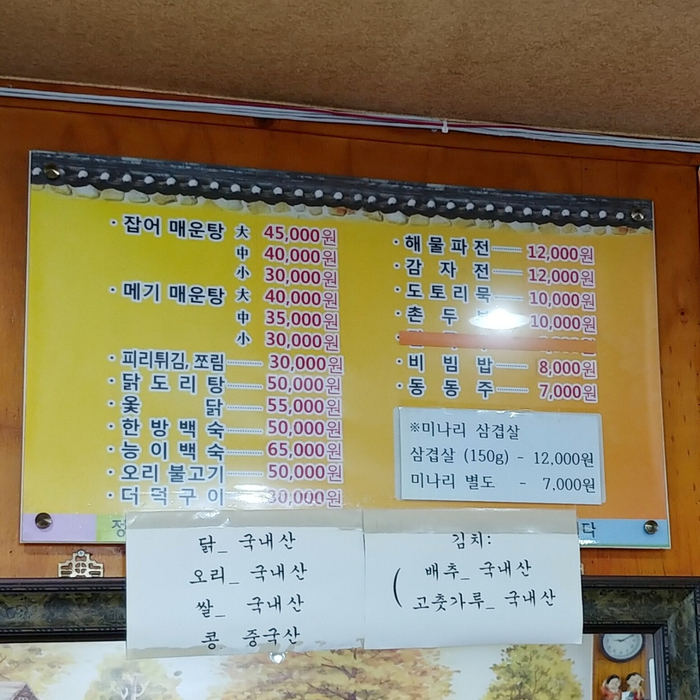 · 잡어 매운탕 大 45,000원
中 40,000원
小 30,000원
· 메기 매운탕 大 40,000원
中 35,000원
小 30,000원
· 피리튀김, 쪼림 30,000원
· 닭도리탕 50,000원
· 옻 닭 55,000원
· 한방백숙 50,000원
· 능이백숙 65,000원
· 오리 불고기 50,000원
· 더덕구이 30,000원
· 해물파전 12,000원
· 감자전 12,000원
· 도토리묵 10,000원
· 촌두부 10,000원
· 비빔밥 8,000원
· 동동주 7,000원
※미나리 삼겹살
삼겹살 (150g) - 12,000원
미나리 별도 - 7.000원
닭_ 국내산
오리_ 국내산
쌀_ 국내산
콩_ 중국산
김치:
( 배추_ 국내산
고춧가루_ 국내산